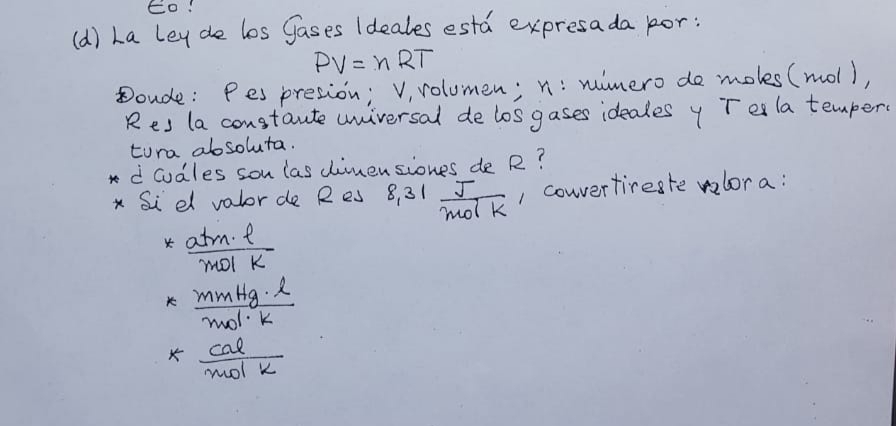 Eo?
(d) La Ley de los Gases Ideales está expresada por:
PV = nRT
Donde: P es presión; V, volumen; n: número de moles (mol),
R es la constante universal de los gases ideales y T es la temper
tura absoluta.
* ¿Cuáles son las dimensiones de R?
* Si el valor de R es 8,31 J / mol K, convertir este valor a:
* atm·l / mol K
* mmHg·l / mol·K
* cal / mol K